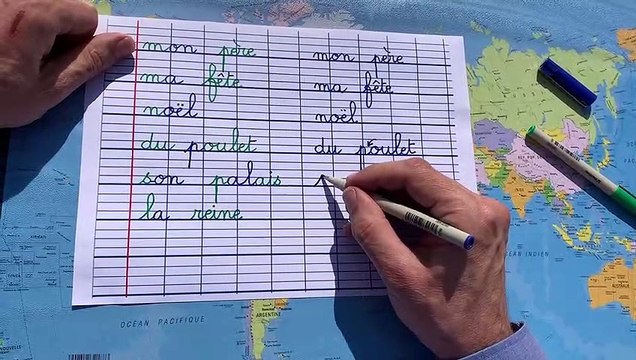 mon père mon père
ma fête ma fête
noël noël
du poulet du poulet
son palais s
la reine
OCÉAN INDIEN
AUSTRALIE
OCÉAN PACIFIQUE
ARGENTINE